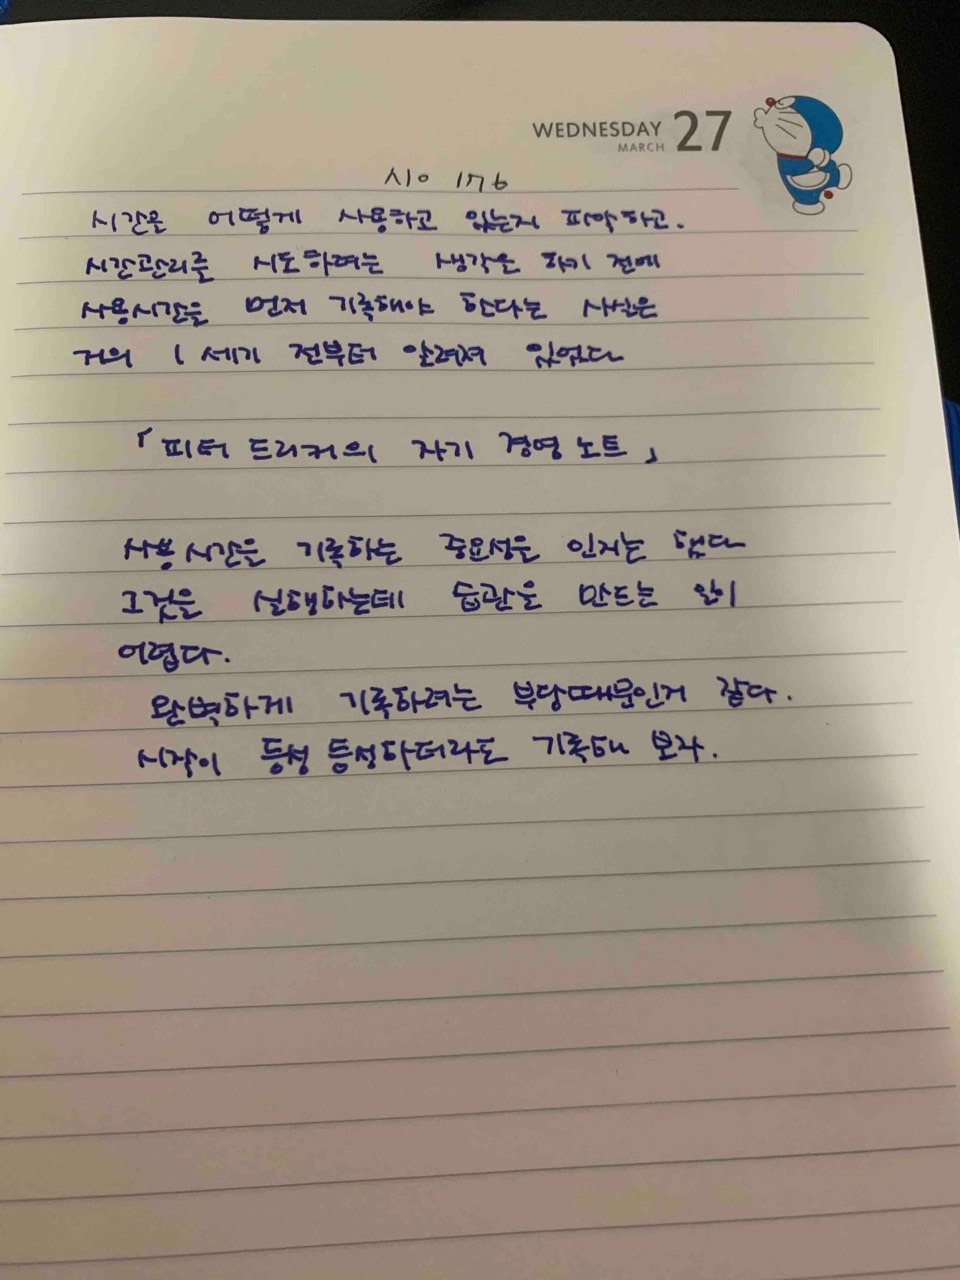 WEDNESDAY 27
MARCH
시간을 어떻게 사용하고 있는지 파악하고.
시간관리를 시도하려는 생각을 하기 전에
사용시간을 먼저 기록해야 한다는 사실은
거의 1세기 전부터 알려져 있었다
「피터 드러커의 자기 경영노트」
사용시간을 기록하는 중요성은 인지는 했다
그것을 실행하는데 습관을 만드는 일이
어렵다.
완벽하게 기록하려는 부담때문인거 같다.
시작이 듬성 듬성하더라도 기록해 보자.